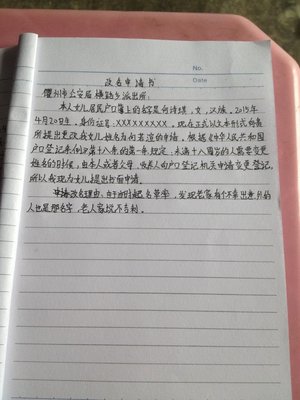 No.
Date
改名申请书
衢州市公安局横路乡派出所:
本人女儿居民户口簿上的名字是向诗琪,女,汉族。2015年
4月20日生,身份证号:XXXXXXXXXX。现在正式以文本形式向贵
所提出更改我女儿姓名为向若渲的申请。根据《中华人民共和国
户口登记条例》第十八条的第一条规定:未满十八周岁的人需要变更
姓名的时候,由本人或者父母、收养人向户口登记机关申请变更登记,
所以我现为女儿提出书面申请。
申请改名理由:由于当时起名草率,发现老家有个不幸出意外的
人也是那名字,老人家说不吉利。